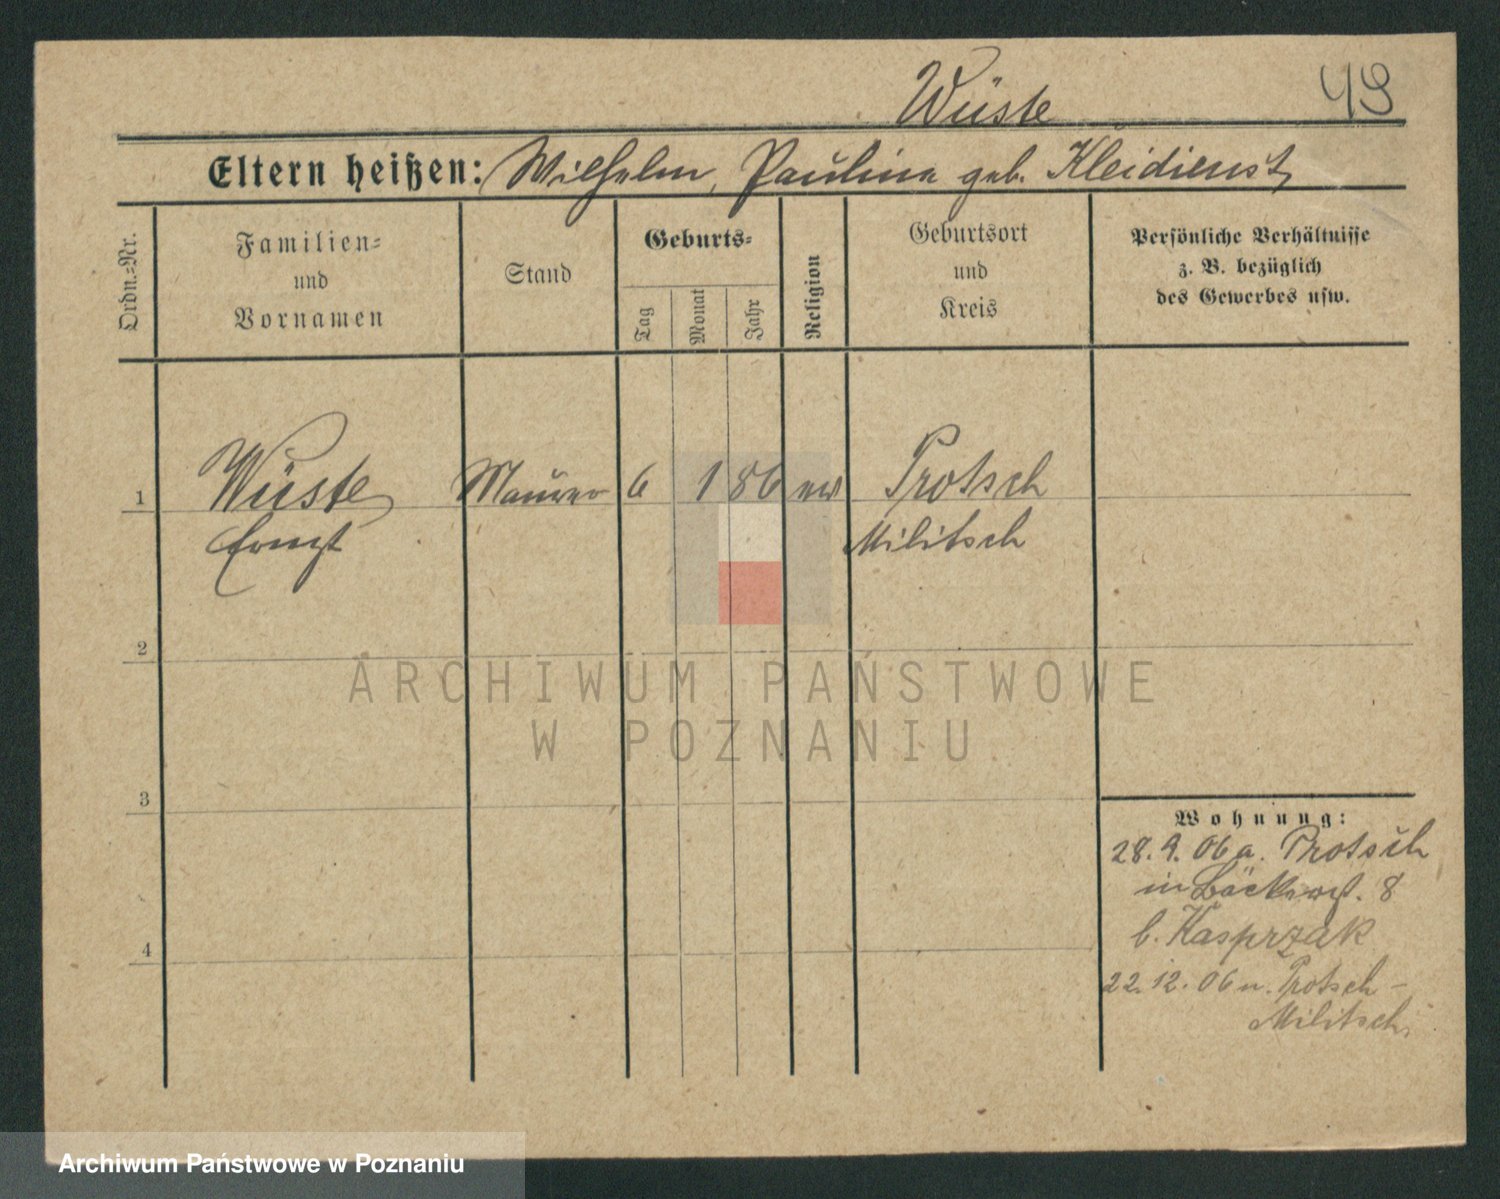 Wüste 49
Eltern heißen: Wilhelm, Pauline geb. Kleidienst
Ordn.-Nr.
Familien- und Vornamen
Stand
Geburts-
Tag
Monat
Jahr
Religion
Geburtsort und Kreis
Persönliche Verhältnisse
z. B. bezüglich
des Gewerbes usw.
1 Wüste Maurer 6 1 86 ev Protsch
Ernst Militsch
2
3
4
Wohnung:
28. 9. 06 a. Protsch
in Bäckerst. 8
b. Kasprzak
22. 12. 06 n. Protsch-
Militsch
ARCHIWUM PAŃSTWOWE
W POZNANIU
Archiwum Państwowe w Poznaniu